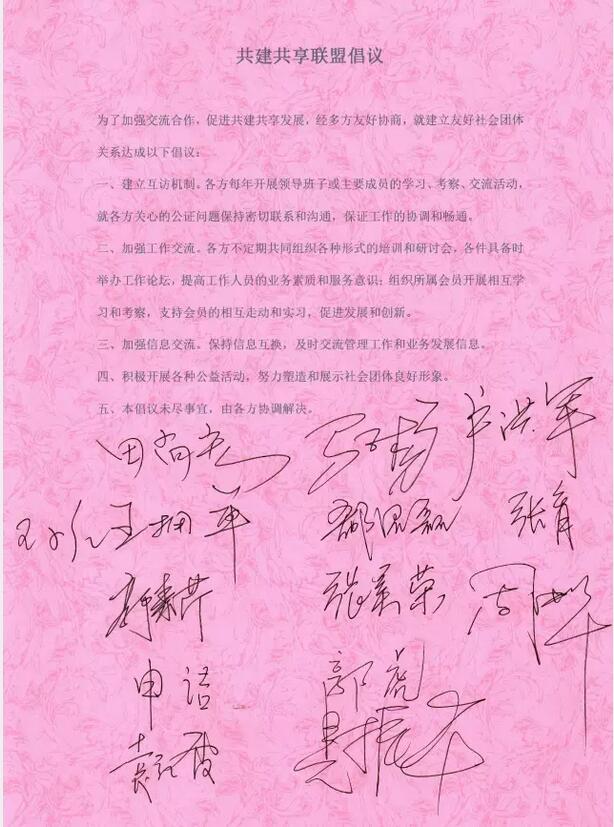 共建共享联盟倡议
为了加强交流合作，促进共建共享发展，经多方友好协商，就建立友好社会团体
关系达成以下倡议：
一、建立互访机制。各方每年开展领导班子或主要成员的学习、考察、交流活动，
就各方关心的公证问题保持密切联系和沟通，保证工作的协调和畅通。
二、加强工作交流。各方不定期共同组织各种形式的培训和研讨会，各件具备时
举办工作论坛，提高工作人员的业务素质和服务意识；组织所属会员开展相互学
习和考察，支持会员的相互走动和实习，促进发展和创新。
三、加强信息交流。保持信息互换，及时交流管理工作和业务发展信息。
四、积极开展各种公益活动，努力塑造和展示社会团体良好形象。
五、本倡议未尽事宜，由各方协调解决。
卢洪军
张育
张美荣
申诘
郭彪